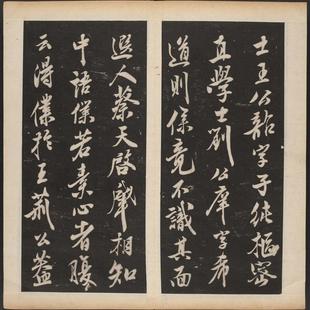 士王公韶字子純樞密
直學士劉公庠字希
道則僕竟不識其面
選人蔡天啓聲相知
中語僕若素心者
云得僕於王荊公蓋